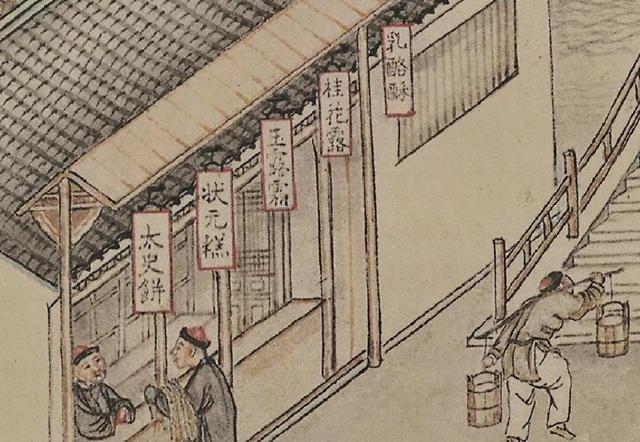 乳酪酥
桂花露
玉露霜
状元糕
太史餅